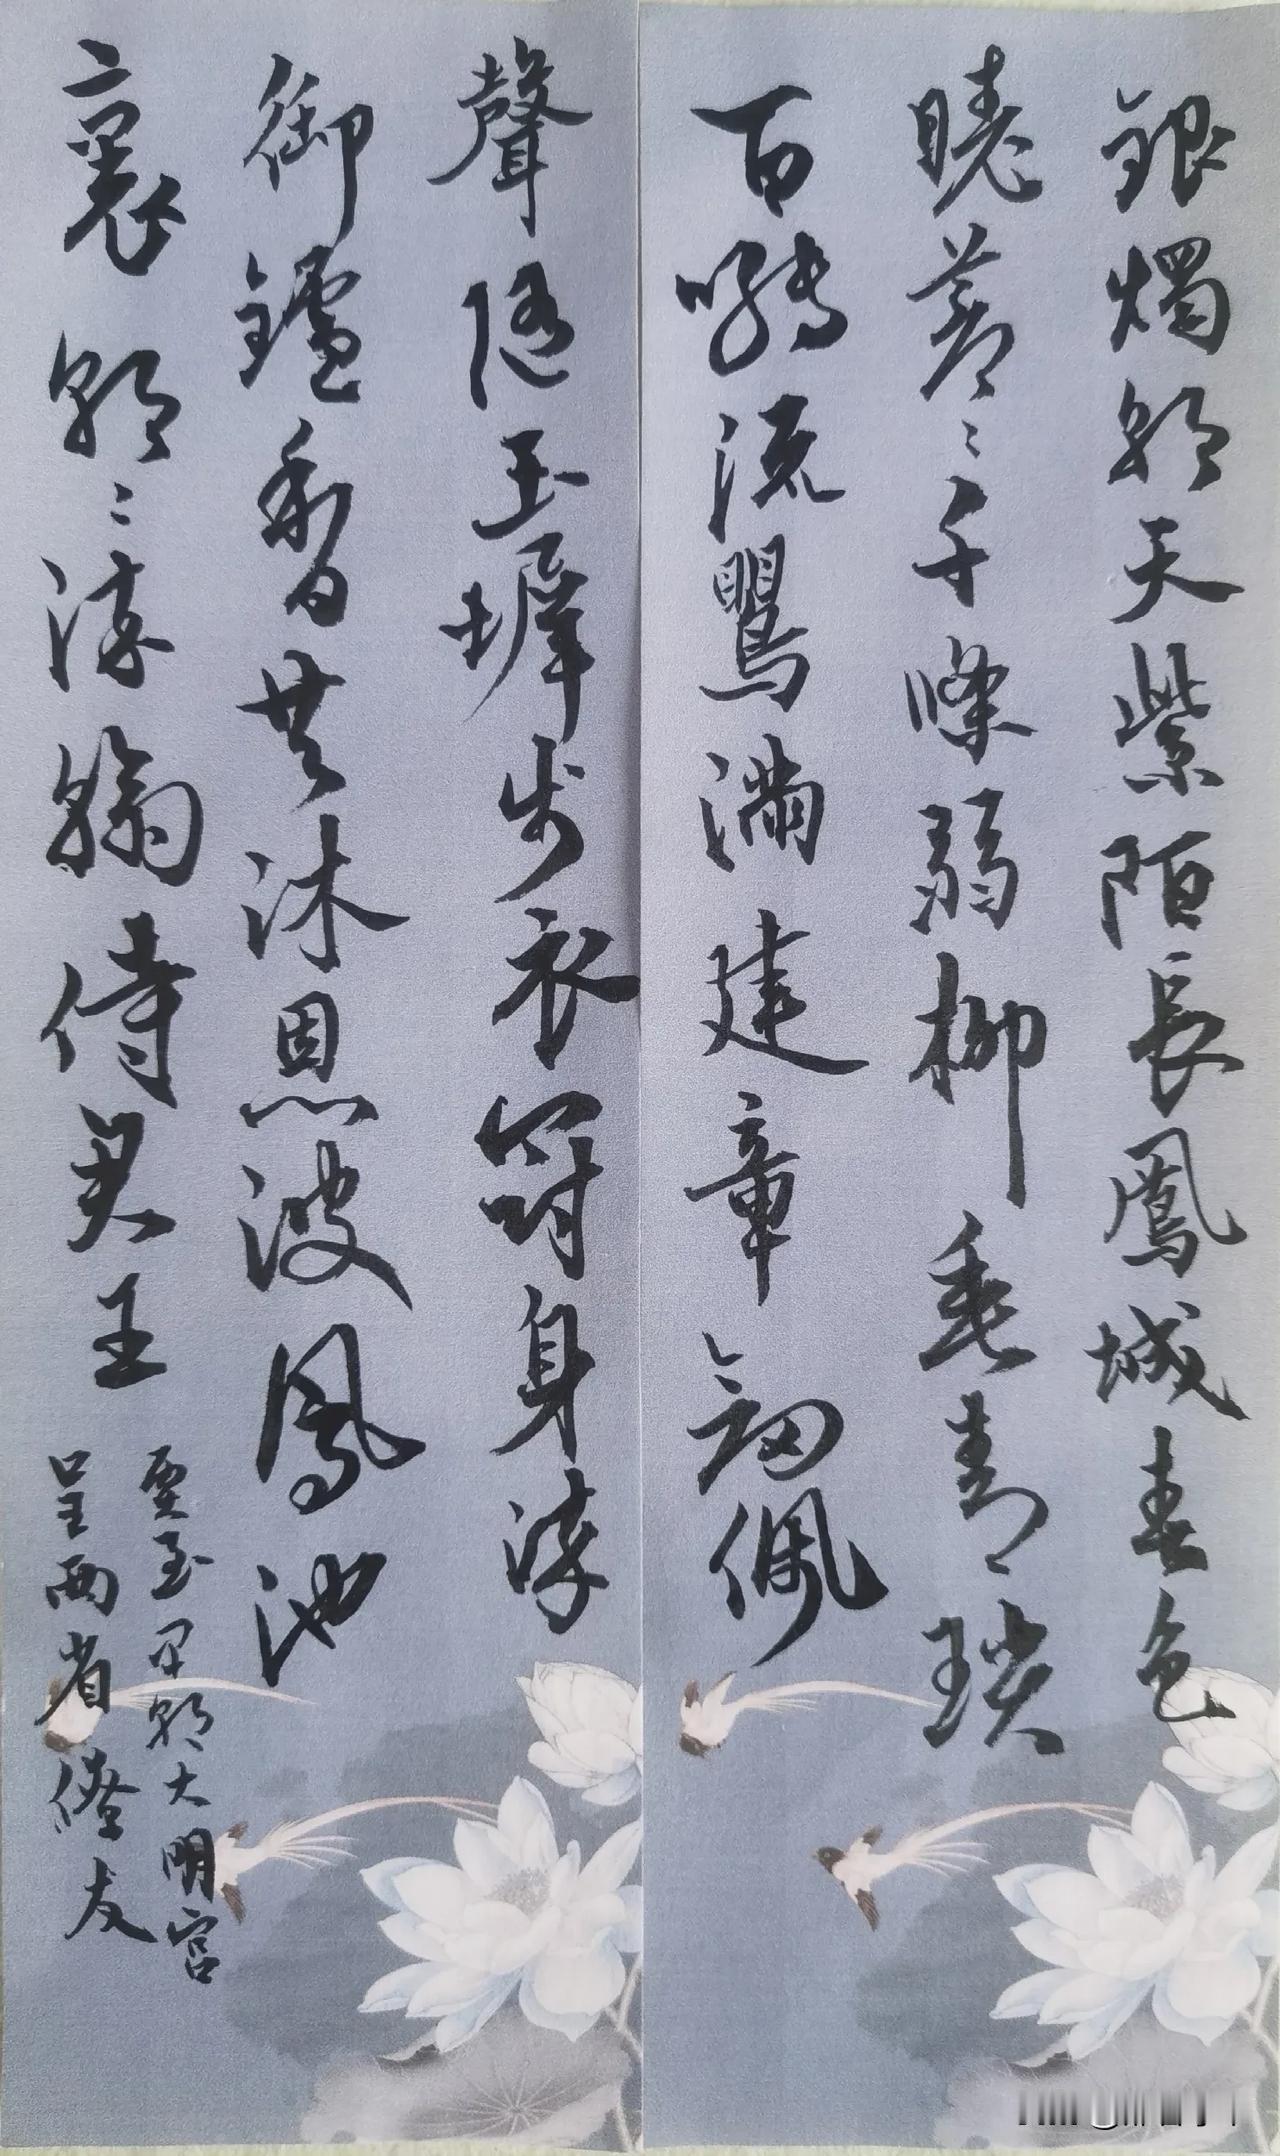 銀燭朝天紫陌長鳳城春色
曉蒼〻千條弱柳垂青瑣
百囀流鸎滿建章劒佩
聲隨玉墀步衣冠身染
御鑪香共沐恩波鳳池
裏朝〻染翰侍君王
賈至早朝大明宮
呈兩省僚友